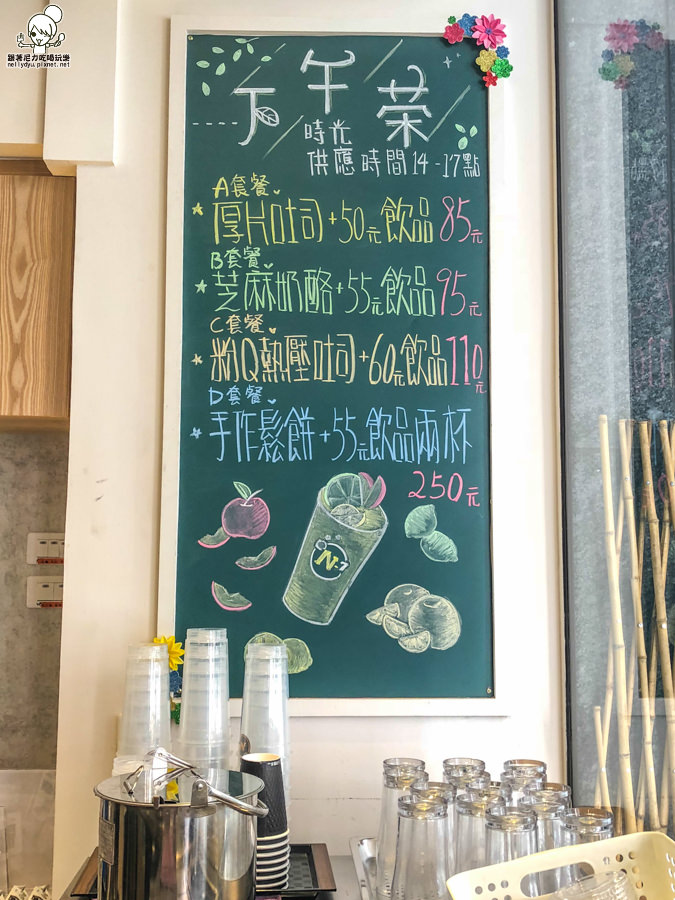 跟著尼力吃喝玩樂
nellydyu.pixnet.net
下午茶
時光
供應時間14-17點
A套餐
厚片吐司+50元飲品85元
B套餐
芝麻奶酪+55元飲品95元
C套餐
粉Q熱壓吐司+60元飲品110元
D套餐
手作鬆餅+55元飲品兩杯
250元
N.7